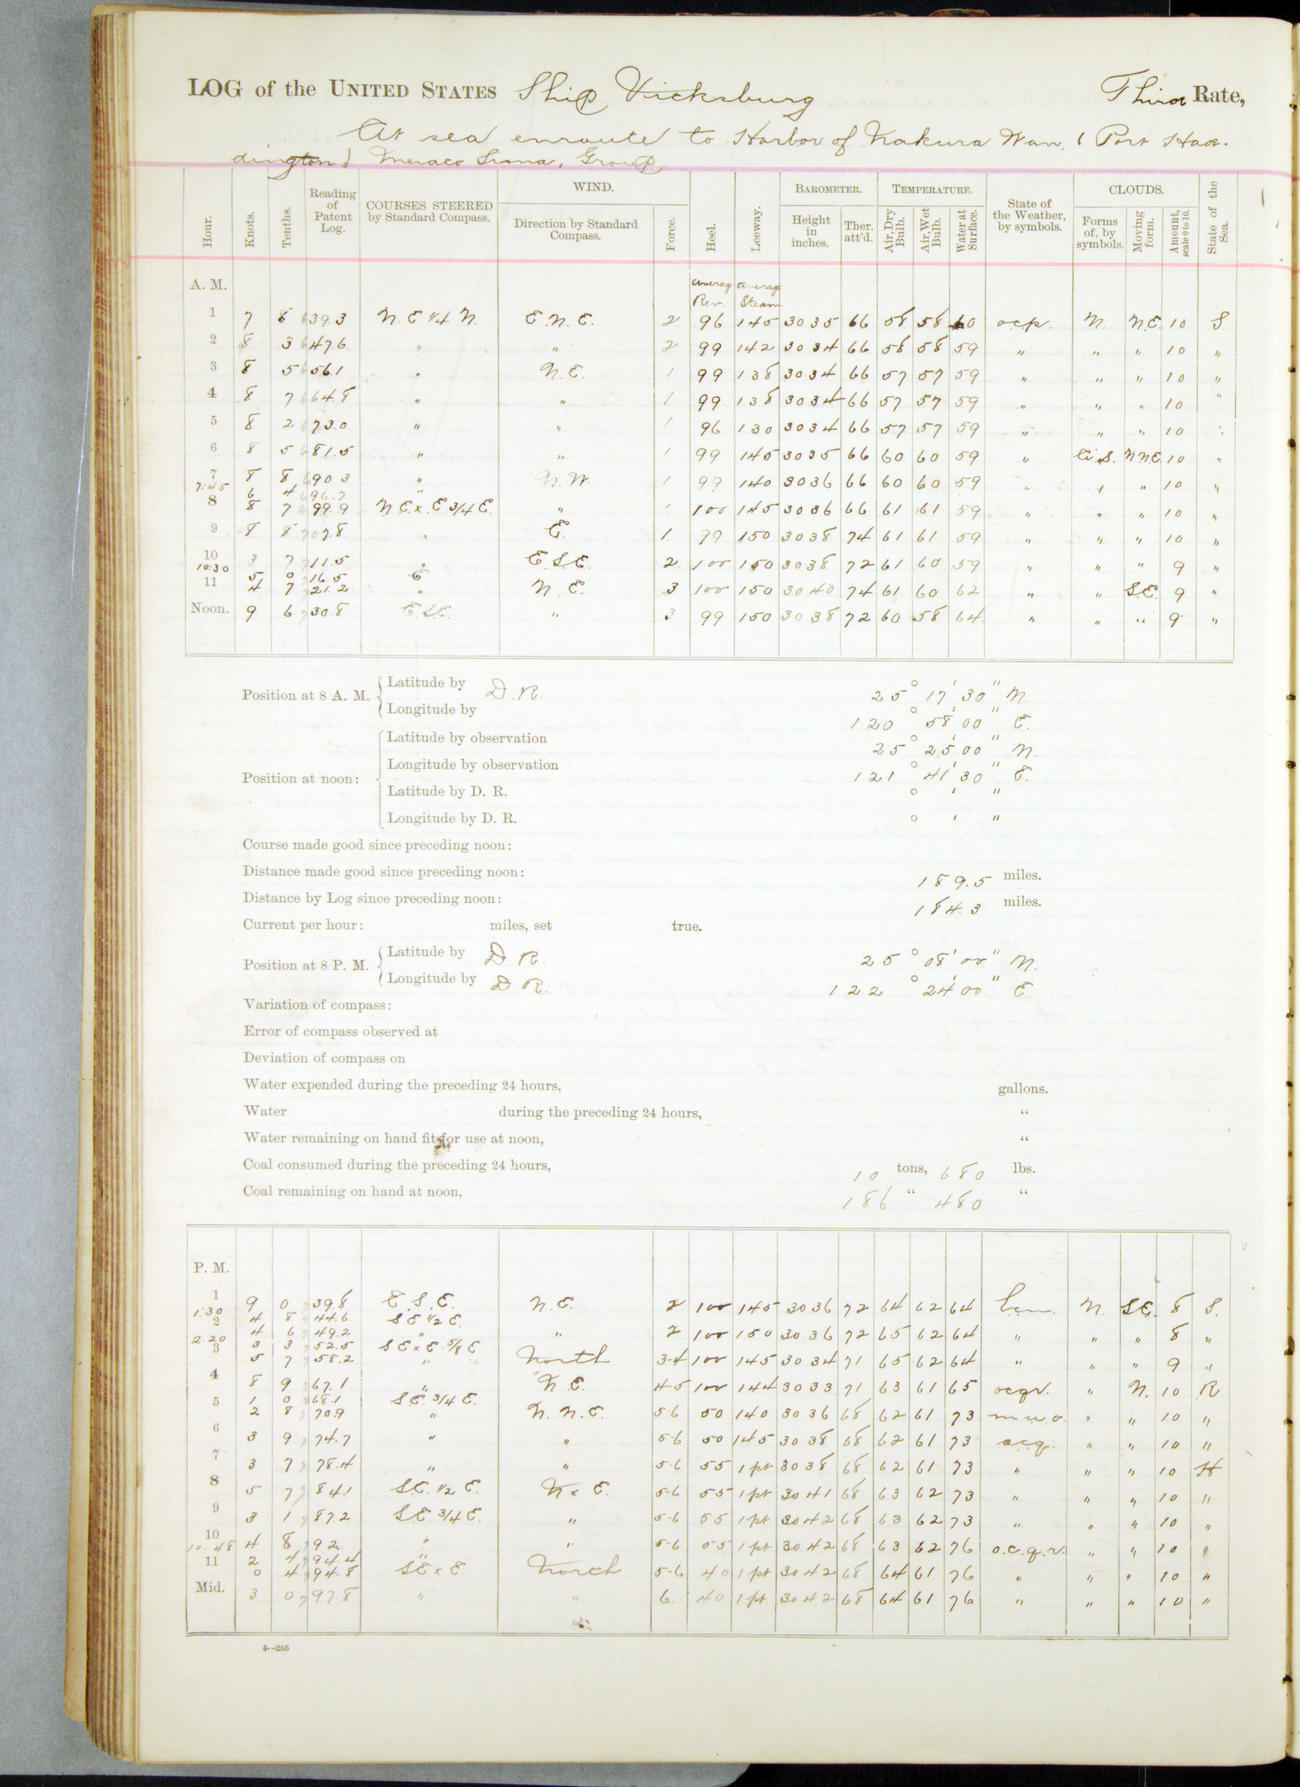 LOG of the UNITED STATES Ship Vicksburg Third Rate,
At sea enroute to Harbor of Nakura Wan. (Port Had-
dington) Meiaco Sima, Group
Hour. Knots. Tenths. Reading of Patent Log. COURSES STEERED by Standard Compass. WIND. Direction by Standard Compass. Force. Heel. Leeway. BAROMETER. Height in inches. Ther. att'd. TEMPERATURE. Air, Dry Bulb. Air, Wet Bulb. Water at Surface. State of the Weather, by symbols. CLOUDS. Forms of, by symbols. Moving form. Amount, scale 0 to 10. State of the Sea.
A. M. average Rev. average Steam
1 7 8 639.3 N. E 1/4 N. E. N. E. 2 96 145 3035 66 58 58 60 ocp. N. N.E. 10 S
2 8 3 647.6 " " 2 99 142 3034 66 58 58 59 " " " 10 "
3 8 5 656.1 " N. E. 1 99 138 3034 66 57 57 59 " " " 10 "
4 8 7 664.8 " " 1 99 138 3034 66 57 57 59 " " " 10 "
5 8 2 673.0 " " 1 96 130 3034 66 57 57 59 " " " 10 "
6 8 5 681.5 " " 1 99 145 3035 66 60 60 59 " Ci.S. NNE 10 "
7 8 8 690.3 " N. W. 1 99 140 3036 66 60 60 59 " " " 10 "
7:45 6 4 696.7 "
8 8 7 699.9 N E. x. E 3/4 E. " 1 100 145 3036 66 61 61 59 " " " 10 "
9 8 8 707.8 " E. 1 99 150 3038 74 61 61 59 " " " 10 "
10 3 7 711.5 " E S E. 2 100 150 3038 72 61 60 59 " " " 9 "
10:30 5 0 716.5 E
11 4 7 721.2 " N. E. 3 100 150 3040 74 61 60 62 " " S.E. 9 "
Noon. 9 6 730.8 E. S.E. " 3 99 150 3038 72 60 58 64 " " " 9 "
Position at 8 A. M. Latitude by D. R. 25° 17' 30" N.
Longitude by 120° 58' 00" E.
Position at noon: Latitude by observation 25° 25' 00" N.
Longitude by observation 121° 41' 30" E.
Latitude by D. R. ° ' "
Longitude by D. R. ° ' "
Course made good since preceding noon:
Distance made good since preceding noon: 189.5 miles.
Distance by Log since preceding noon: 184.3 miles.
Current per hour: miles, set true.
Position at 8 P. M. Latitude by D R. 25° 08' 00" N.
Longitude by D. R. 122° 24' 00" E
Variation of compass:
Error of compass observed at
Deviation of compass on
Water expended during the preceding 24 hours, gallons.
Water during the preceding 24 hours, "
Water remaining on hand fit for use at noon, "
Coal consumed during the preceding 24 hours, 10 tons, 680 lbs.
Coal remaining on hand at noon, 186 " 480 "
P. M.
1 9 0 739.8 E. S. E. N. E. 2 100 145 3036 72 64 62 64 N. S.E. 8 S.
1:30 4 8 44.6 S E 1/2 E.
2 4 6 49.2 " " 2 100 150 3036 72 65 62 64 " " " 8 "
2.20 3 3 52.5 S E x E. 5/8 E
3 5 7 58.2 " North 3-4 100 145 3034 71 65 62 64 " " " 9 "
4 8 9 67.1 " N. E. 4-5 100 144 3033 71 63 61 65 ocqr. " N. 10 R
1 0 68.1 S E. 3/4 E.
5 2 8 70.9 " N. N. E. 5-6 50 140 3036 68 62 61 73 " " 10 "
6 3 9 74.7 " " 5-6 50 145 3038 68 62 61 73 ocq. " " 10 "
7 3 7 78.4 " " 5-6 55 1 pt 3038 68 62 61 73 " " " 10 H
8 5 7 84.1 S.E. 1/2 E. N x E. 5-6 55 1 pt 3041 68 63 62 73 " " " 10 "
9 3 1 87.2 S.E. 3/4 E. " 5-6 55 1 pt 3042 68 63 62 73 " " " 10 "
10 4 8 92 " " 5-6 55 1 pt 3042 68 63 62 76 o.c.q.r. " " 10 "
10:48 2 4 94.4 "
11 0 4 94.8 S E x E. North 5-6 40 1 pt 3042 68 64 61 76 " " " 10 "
Mid. 3 0 97.8 " " 6. 40 1 pt 3042 68 64 61 76 " " " 10 "
4--255